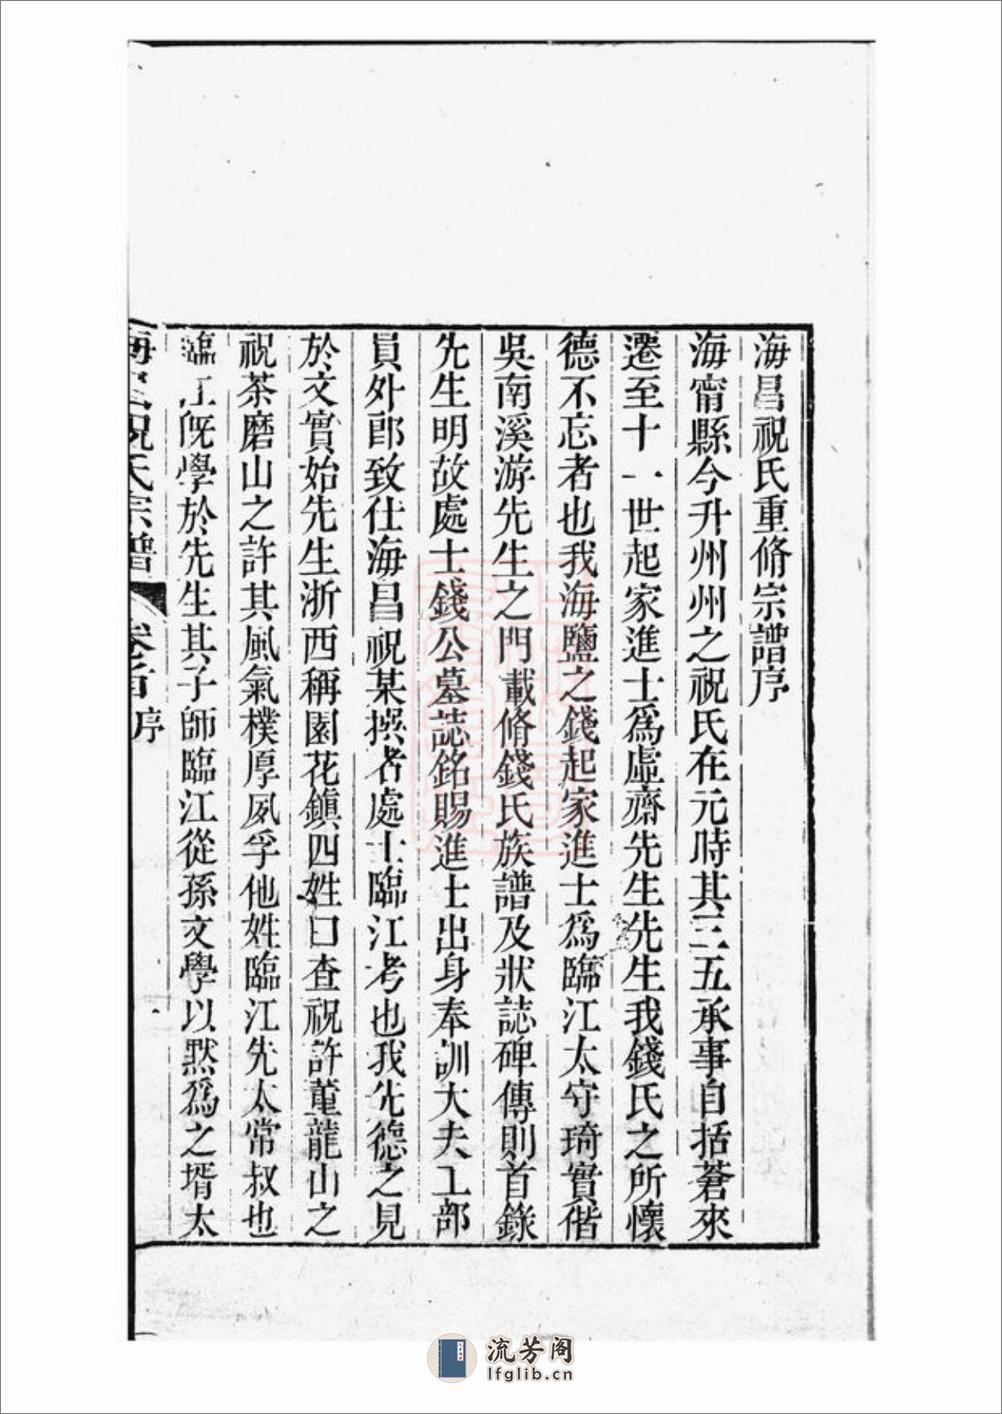 海昌祝氏重脩宗譜序
海甯縣今升州州之祝氏在元時其三五承事自括蒼來
遷至十一世起家進士爲虛齋先生先生我錢氏之所懷
德不忘者也我海鹽之錢起家進士爲臨江太守琦實偕
吳南溪游先生之門載脩錢氏族譜及狀誌碑傳則首錄
先生明故處士錢公墓誌銘賜進士出身奉訓大夫工部
員外郎致仕海昌祝某撰者處士臨江考也我先德之見
於文實始先生浙西稱園花鎮四姓曰查祝許董龍山之
祝茶磨山之許其風氣樸厚夙孚他姓臨江先太常叔也
臨江旣學於先生其子師臨江從孫文學以默爲之壻太
海昌祝氏宗譜 卷之首 序 一
流芳阁
lfglib.cn